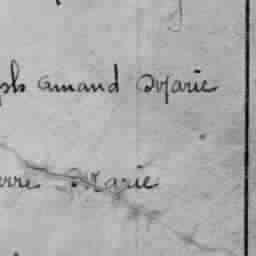 ph Amand Marie
erre Marie